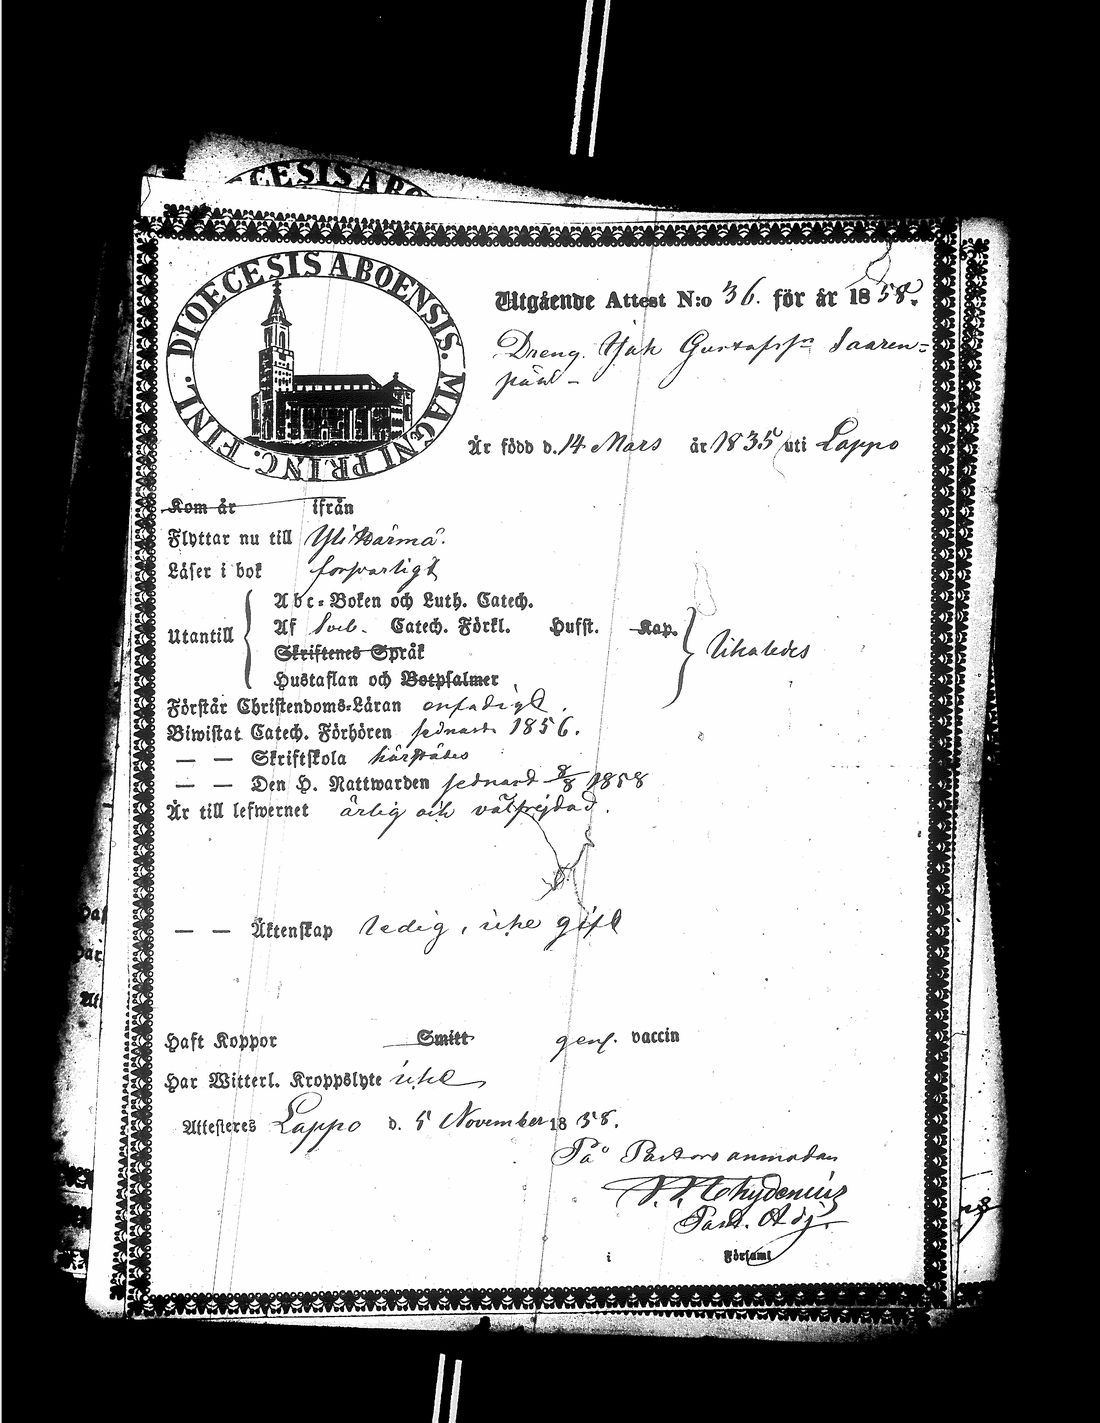 DIOECESIS ABOENSIS. MAGNI PRINC. FINL.
Utgående Attest N:o 36. för år 1858.
Dreng. Jak Gustafss Saaren-
pää
Är född d. 14 Mars år 1835 uti Lappo
Kom år ifrån
Flyttar nu till Ylikärmä.
Läser i bok försvarligt
Utantill
Abc-Boken och Luth. Catech.
Af Sveb. Catech. Förkl. Hufst. Kap.
Skriftenes Språk
Hustaflan och Botpsalmer
likaledes
Förstår Christendoms-Läran enfadigt.
Biwistat Catech. Förhören sednast 1856.
— — Skriftskola härstädes
— — Den H. Nattwarden sednast 8/8 1858
Är till lefwernet ärlig och välfrejdad.
— — Äktenskap ledig, icke gift
Haft Koppor Smitt genf. vaccin
Har Witterl. Kroppslyte icke
Attesteres Lappo d. 5 November 1858.
På Pastors anmodan
Chydenius
Past. Adj.
i Församl